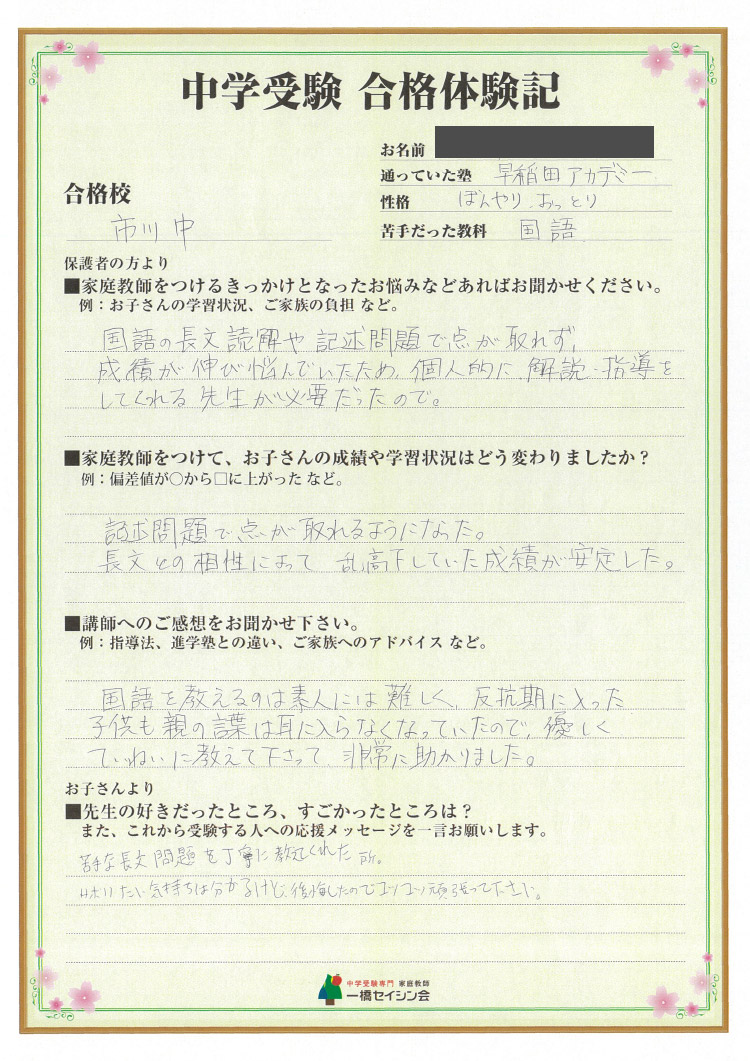 中学受験 合格体験記
お名前
通っていた塾 早稲田アカデミー
合格校
性格 ぼんやり、おっとり
市川中
苦手だった教科 国語
保護者の方より
■家庭教師をつけるきっかけとなったお悩みなどあればお聞かせください。
例：お子さんの学習状況、ご家族の負担 など。
国語の長文読解や記述問題で点が取れず、
成績が伸び悩んでいたため、個人的に解説・指導を
してくれる先生が必要だったので。
■家庭教師をつけて、お子さんの成績や学習状況はどう変わりましたか？
例：偏差値が〇から□に上がった など。
記述問題で点が取れるようになった。
長文との相性によって乱高下していた成績が安定した。
■講師へのご感想をお聞かせ下さい。
例：指導法、進学塾との違い、ご家族へのアドバイス など。
国語を教えるのは素人には難しく、反抗期に入った
子供も親の言葉は耳に入らなくなっていたので、優しく
ていねいに教えて下さって、非常に助かりました。
お子さんより
■先生の好きだったところ、すごかったところは？
また、これから受験する人への応援メッセージを一言お願いします。
苦手な長文問題を丁寧に教えてくれた所。
サボりたい気持ちは分かるけど、後悔したのでコツコツ頑張って下さい。
中学受験専門 家庭教師
一橋セイシン会